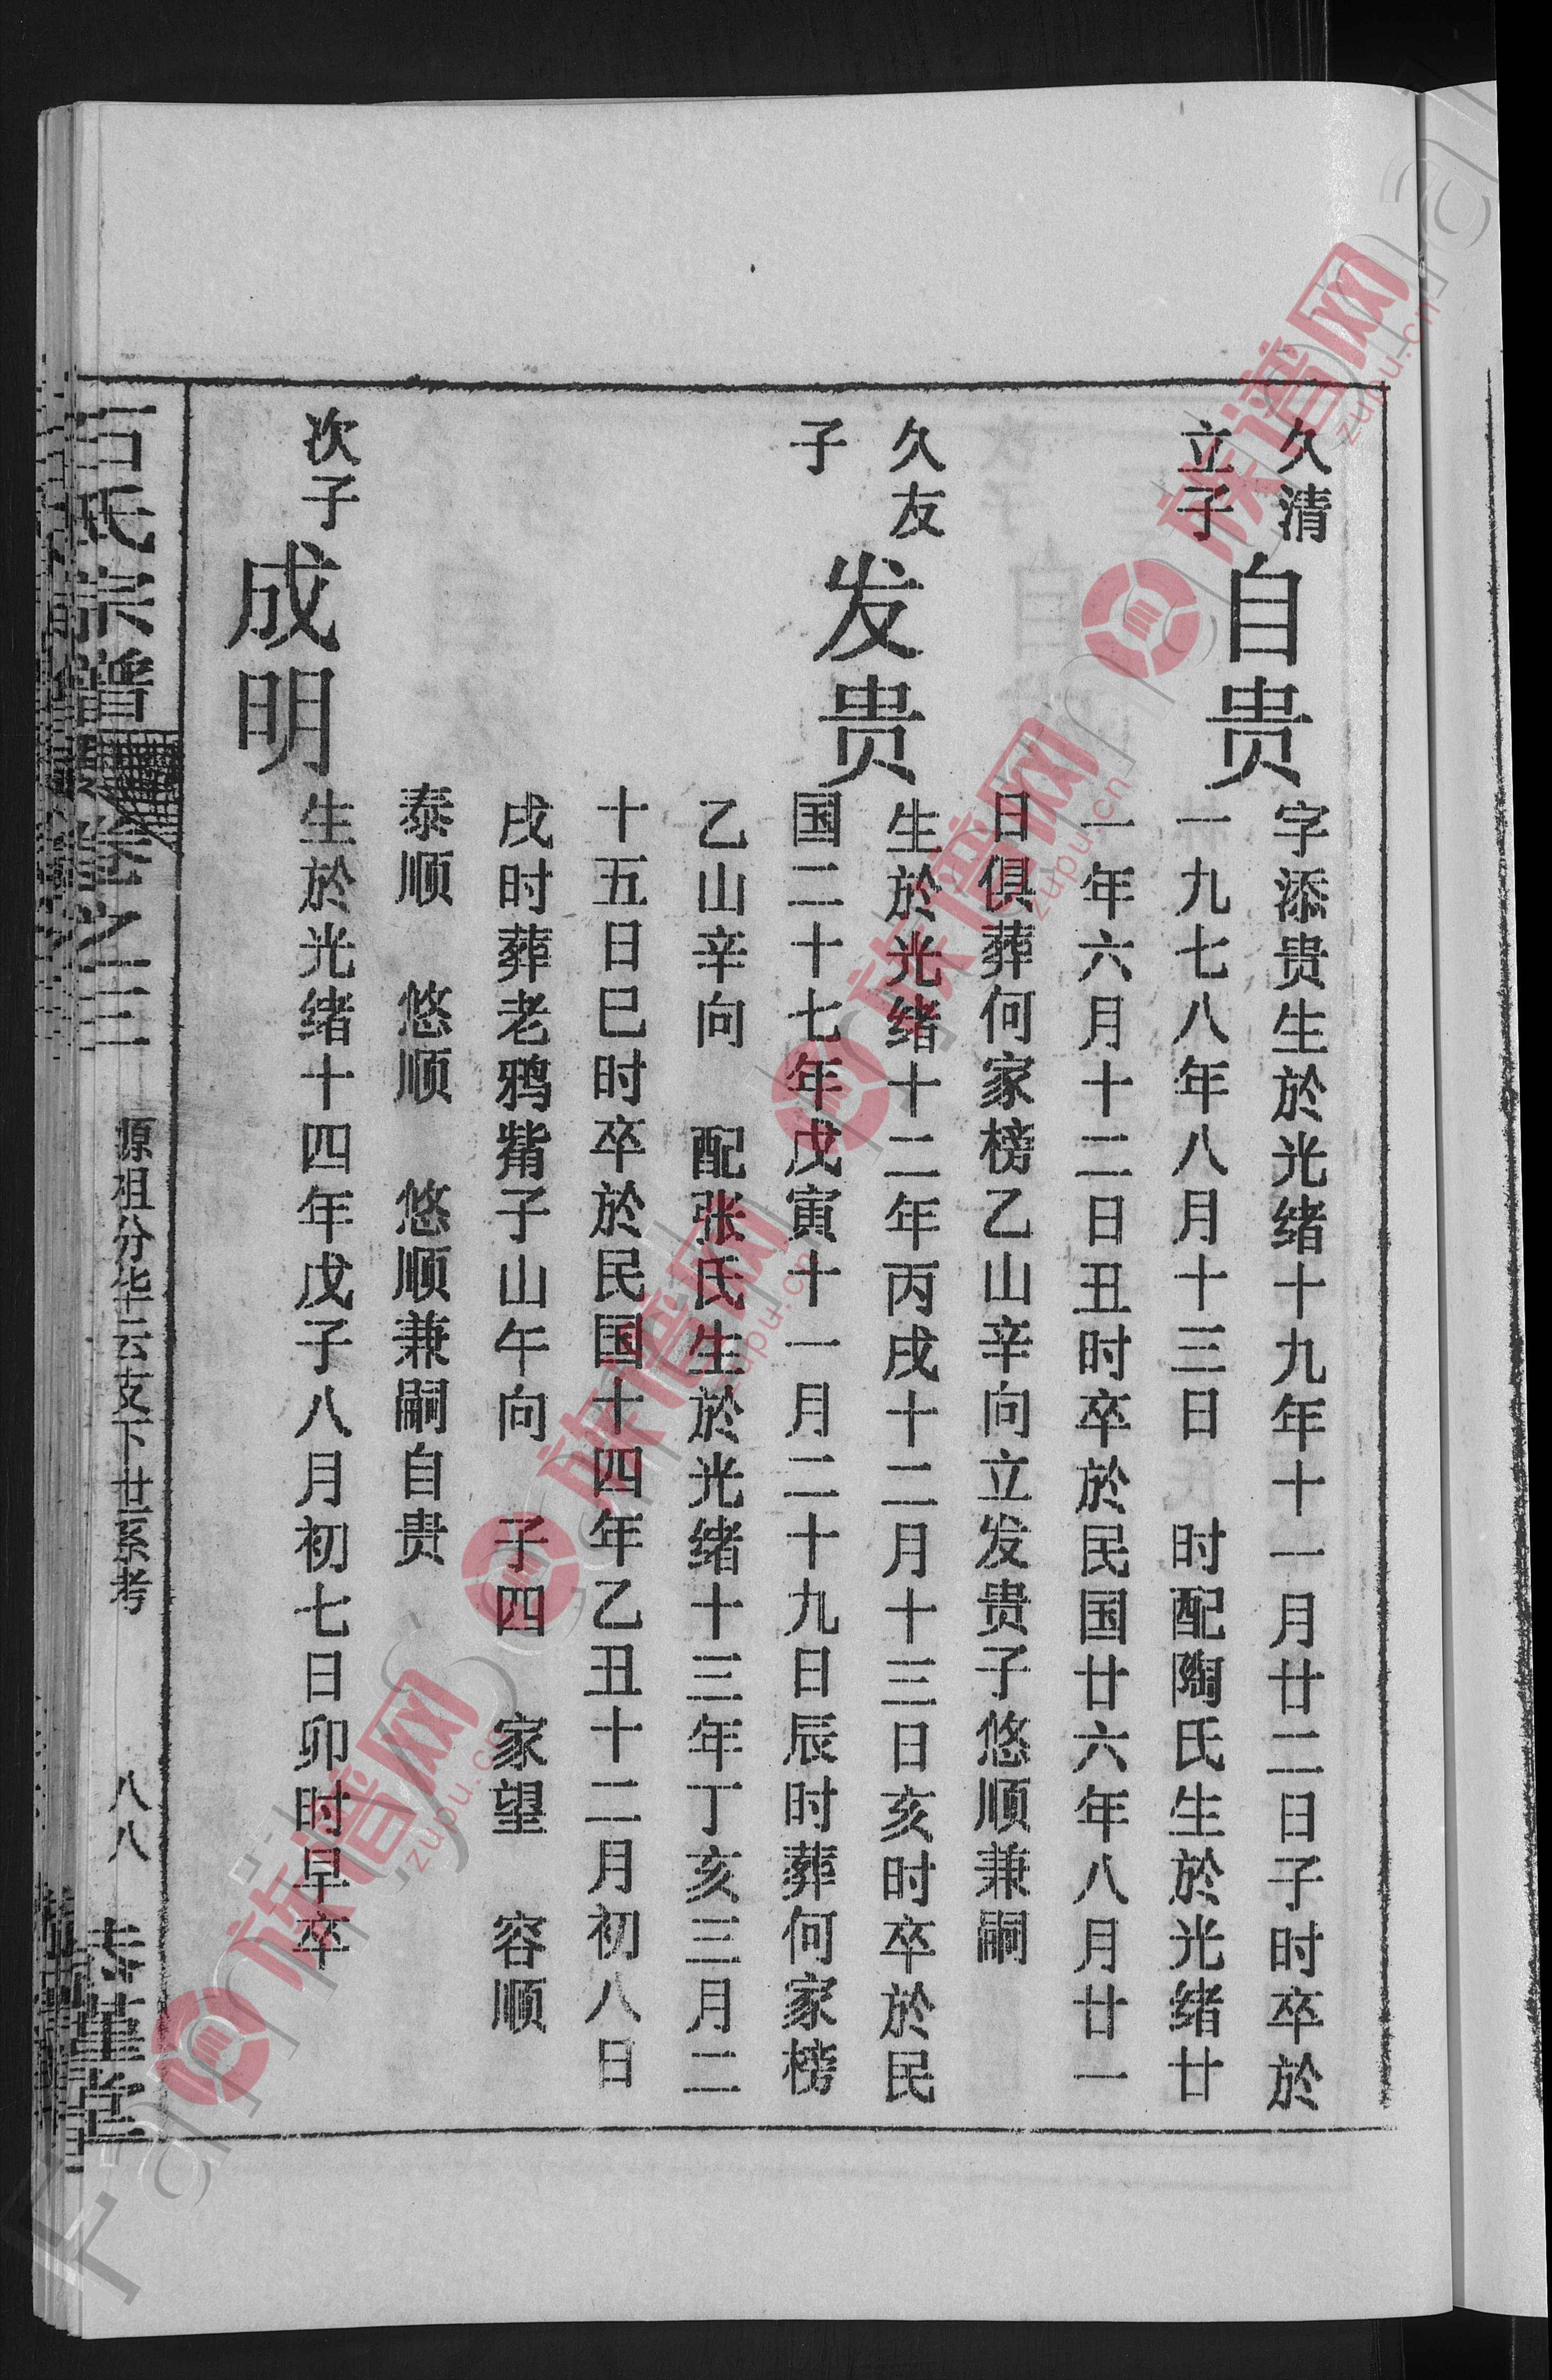 久清
立子
自贵
字添贵生於光绪十九年十一月廿二日子时卒於
一九七八年八月十三日 时配陶氏生於光绪廿
一年六月十二日丑时卒於民国廿六年八月廿一
日俱葬何家榜乙山辛向立发贵子悠顺兼嗣
久友
子
发贵
生於光绪十二年丙戌十二月十三日亥时卒於民
国二十七年戊寅十一月二十九日辰时葬何家榜
乙山辛向 配张氏生於光绪十三年丁亥三月二
十五日巳时卒於民国十四年乙丑十二月初八日
戌时葬老鸦觜子山午向 子四 家望 容顺
泰顺 悠顺 悠顺兼嗣自贵
次子
成明
生於光绪十四年戊子八月初七日卯时早卒
氏宗谱
卷之三
源祖分华云支下世系考
八八
堂
族谱网
zupu.cn
族谱网
zupu.cn
族谱网
zupu.cn
族谱网
zupu.cn
族谱网